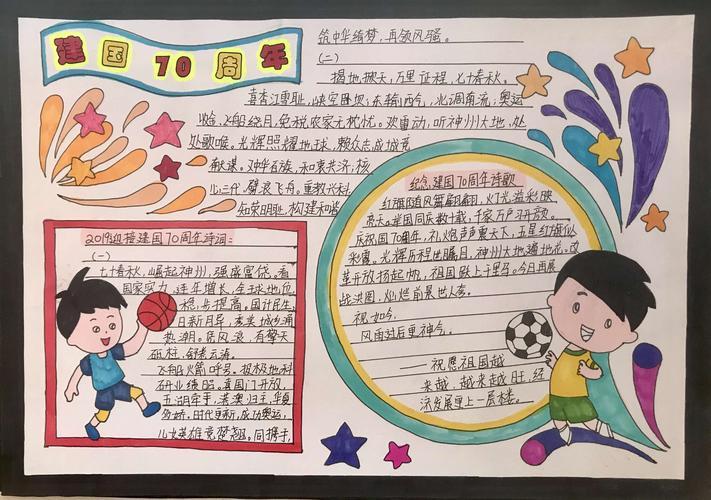 建国70周年
2019迎接建国70周年诗词:
(一)
七十春秋,崛起神州,强盛富饶。看
国家实力,连年增长,全球地位
稳步提高。国计民生,
日新月异,城乡涌
热潮。居风浪,有擎天
砥柱,
飞船火箭呼号。极地科
研业绩昭。喜国门开放,
五湖牵手,港澳归主,华夏
多娇。时代更新,成功奥运,
儿女英雄竞楚翘。同携手,
筑中华绮梦,再领风骚。
(二)
揭地掀天,万里征程,七十春秋。
喜香江雪耻,东输西气,北调南流,奥运
飞船绕月,免税农家无忧。听神州大地,处
处歌喉。光辉照耀地球,赖众志成城
献谋。对中华百族,和衷共济,核
心三代,劈浪飞舟。重教兴科,
知荣明耻,构建和谐
纪念建国70周年诗歌
红旗随风篇翩翻,灯光溢彩映
亮天。举国同庆数十载,千家万户
庆祝国70周年,礼炮声声震天下,五星红旗似
彩霞。光辉历程世瞩目,神州大地遍地花。改
革开放扬起帆,祖国踏上千里马。今日再展
宏图,灿烂前景世人夸。
祝如今,
风雨过后更神气。
——祝愿祖国越
来越,越来越旺,经
济发展更上一层楼。